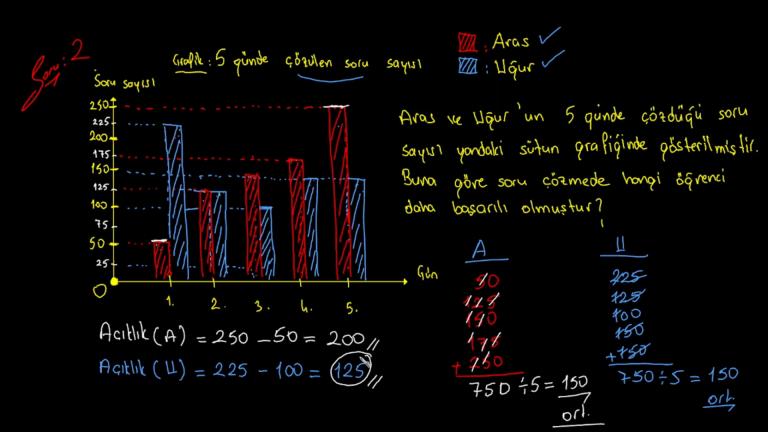 Soru: 2
Grafik: 5 günde çözülen soru sayısı
: Aras
: Uğur
Soru sayısı
250
225
200
175
150
125
100
75
50
25
0
1.
2.
3.
4.
5.
Gün
Aras ve Uğur'un 5 günde çözdüğü soru
sayısı yandaki sütun grafiğinde gösterilmiştir.
Buna göre soru çözmede hangi öğrenci
daha başarılı olmuştur?
Açıklık (A) = 250 - 50 = 200
Açıklık (U) = 225 - 100 = 125
A
50
125
150
175
+ 250
750 ÷ 5 = 150
ort.
U
225
125
100
150
+ 150
750 ÷ 5 = 150
ort.